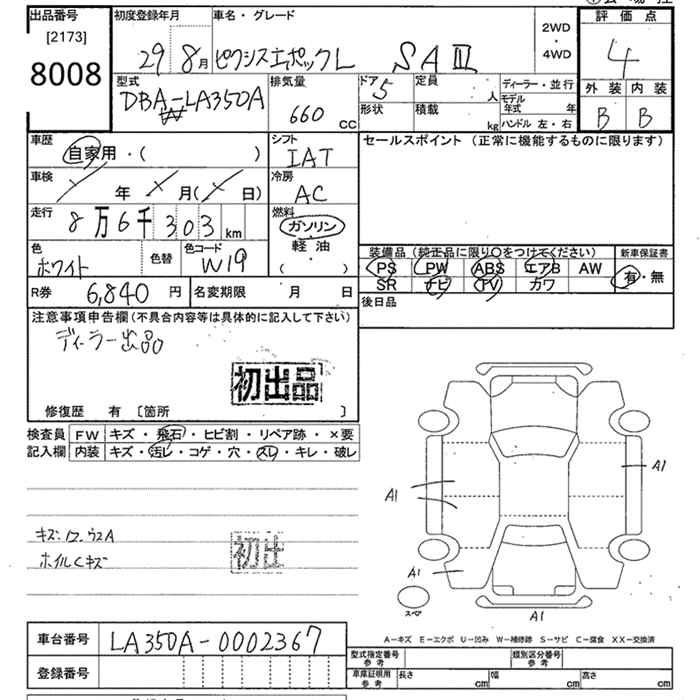 出品番号
[2173]
8008
初度登録年月
29 8月
車名・グレード
ピクシスエポックL SA Ⅲ
2WD
・
4WD
評価点
4
外装 内装
B B
型式
DBA-LA350A
排気量
660 cc
ドア
5
定員
人
ディーラー・並行
モデル年式 年
形状
積載
kg
ハンドル 左・右
車歴
自家用・( )
シフト
IAT
セールスポイント (正常に機能するものに限ります)
車検
年 月( 日)
冷房
AC
走行
8万6千303km
燃料
ガソリン
軽油
( ・ )
色
ホワイト
色替
色コード
W19
装備品 (純正品に限り○をつけてください)
新車保証書
PS PW ABS エアB AW
SR ナビ TV カワ
有・無
R券 6,840 円
名変期限 月 日
後日品
注意事項申告欄(不具合内容等は具体的に記入して下さい)
ディーラー出品
初出品
修復歴 有 [箇所 ]
検査員記入欄
FW キズ・飛石・ヒビ割・リペア跡・×要
内装 キズ・汚レ・コゲ・穴・スレ・キレ・破レ
A1
A1
A1
A1
スペア
ホイルCキズ
初出
A−キズ E−エクボ U−凹み W−補修跡 S−サビ C−腐食 XX−交換済
車台番号 LA350A-0002367
登録番号
型式指定番号
参考
類別区分番号
参考
車庫証明用
参考
長さ cm 幅 cm 高さ cm